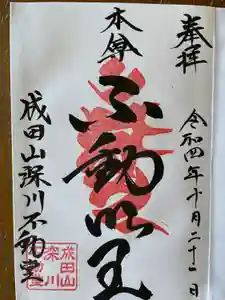 奉拝
令和四年十月二十一日
本尊
不動明王
成田山深川不動堂
成田山
深川